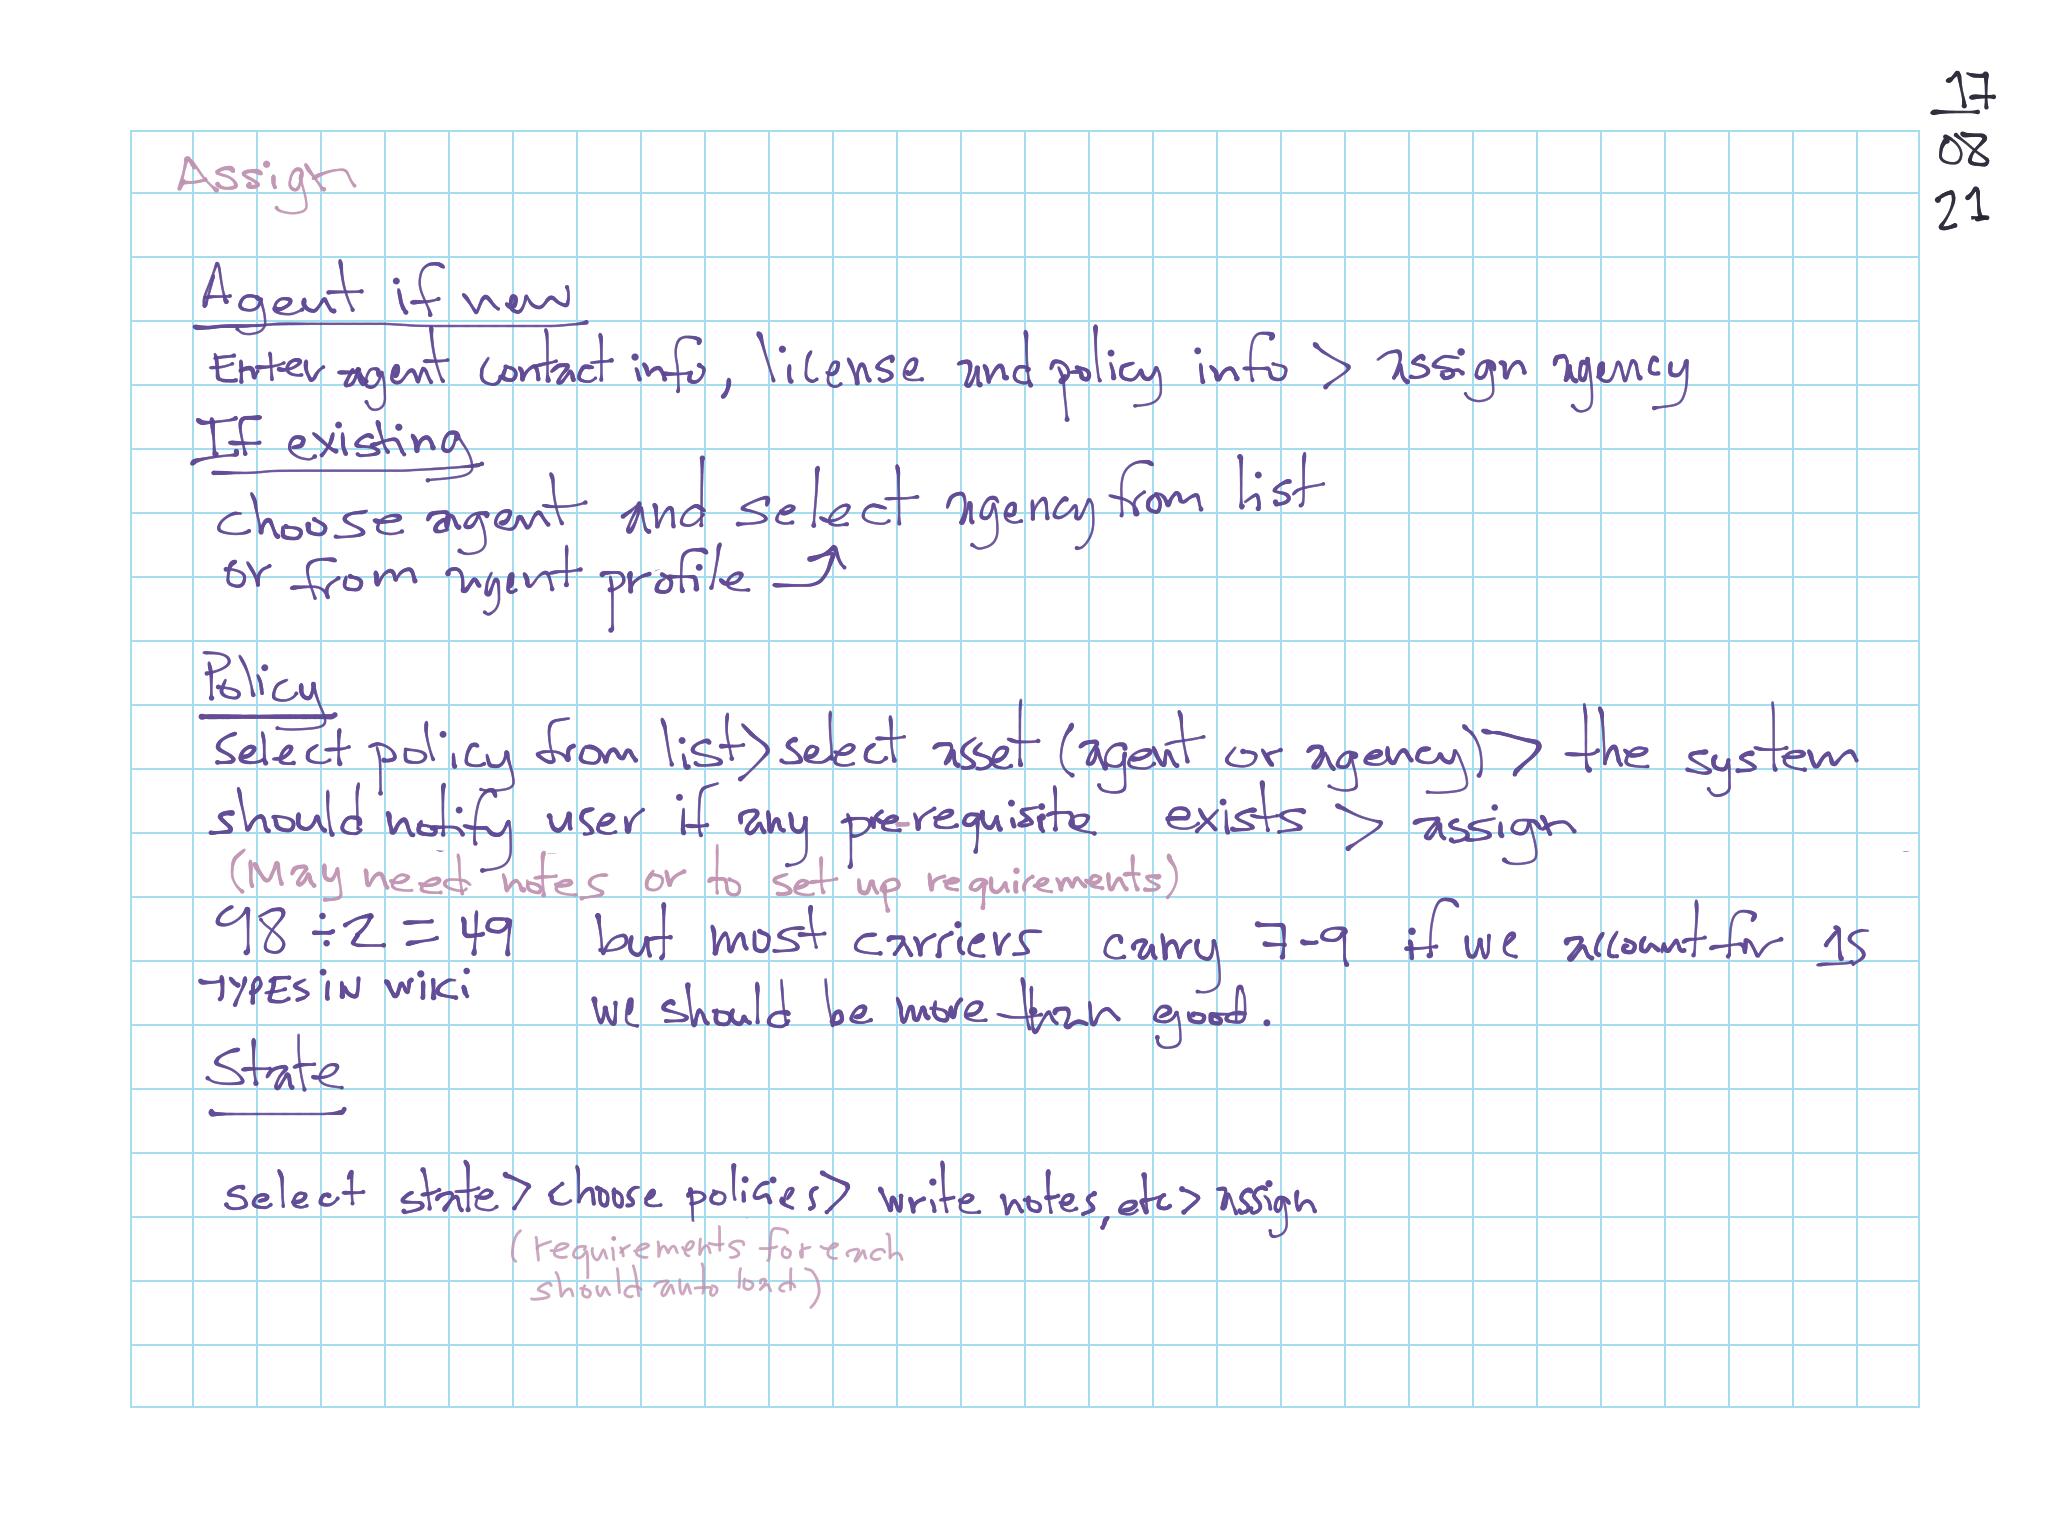 17
08
21
Assign
Agent if new
Enter agent contact info, license and policy info > assign agency
If existing
choose agent and select agency from list
or from agent profile ⤴
Policy
select policy from list > select asset (agent or agency) > the system
should notify user if any pre-requisite exists > assign
(May need notes or to set up requirements)
98 ÷ 2 = 49 but most carriers carry 7-9 if we account for 15
TYPES IN WIKI we should be more than good.
State
select state > choose policies > write notes, etc > assign
(requirements for each
should auto load)